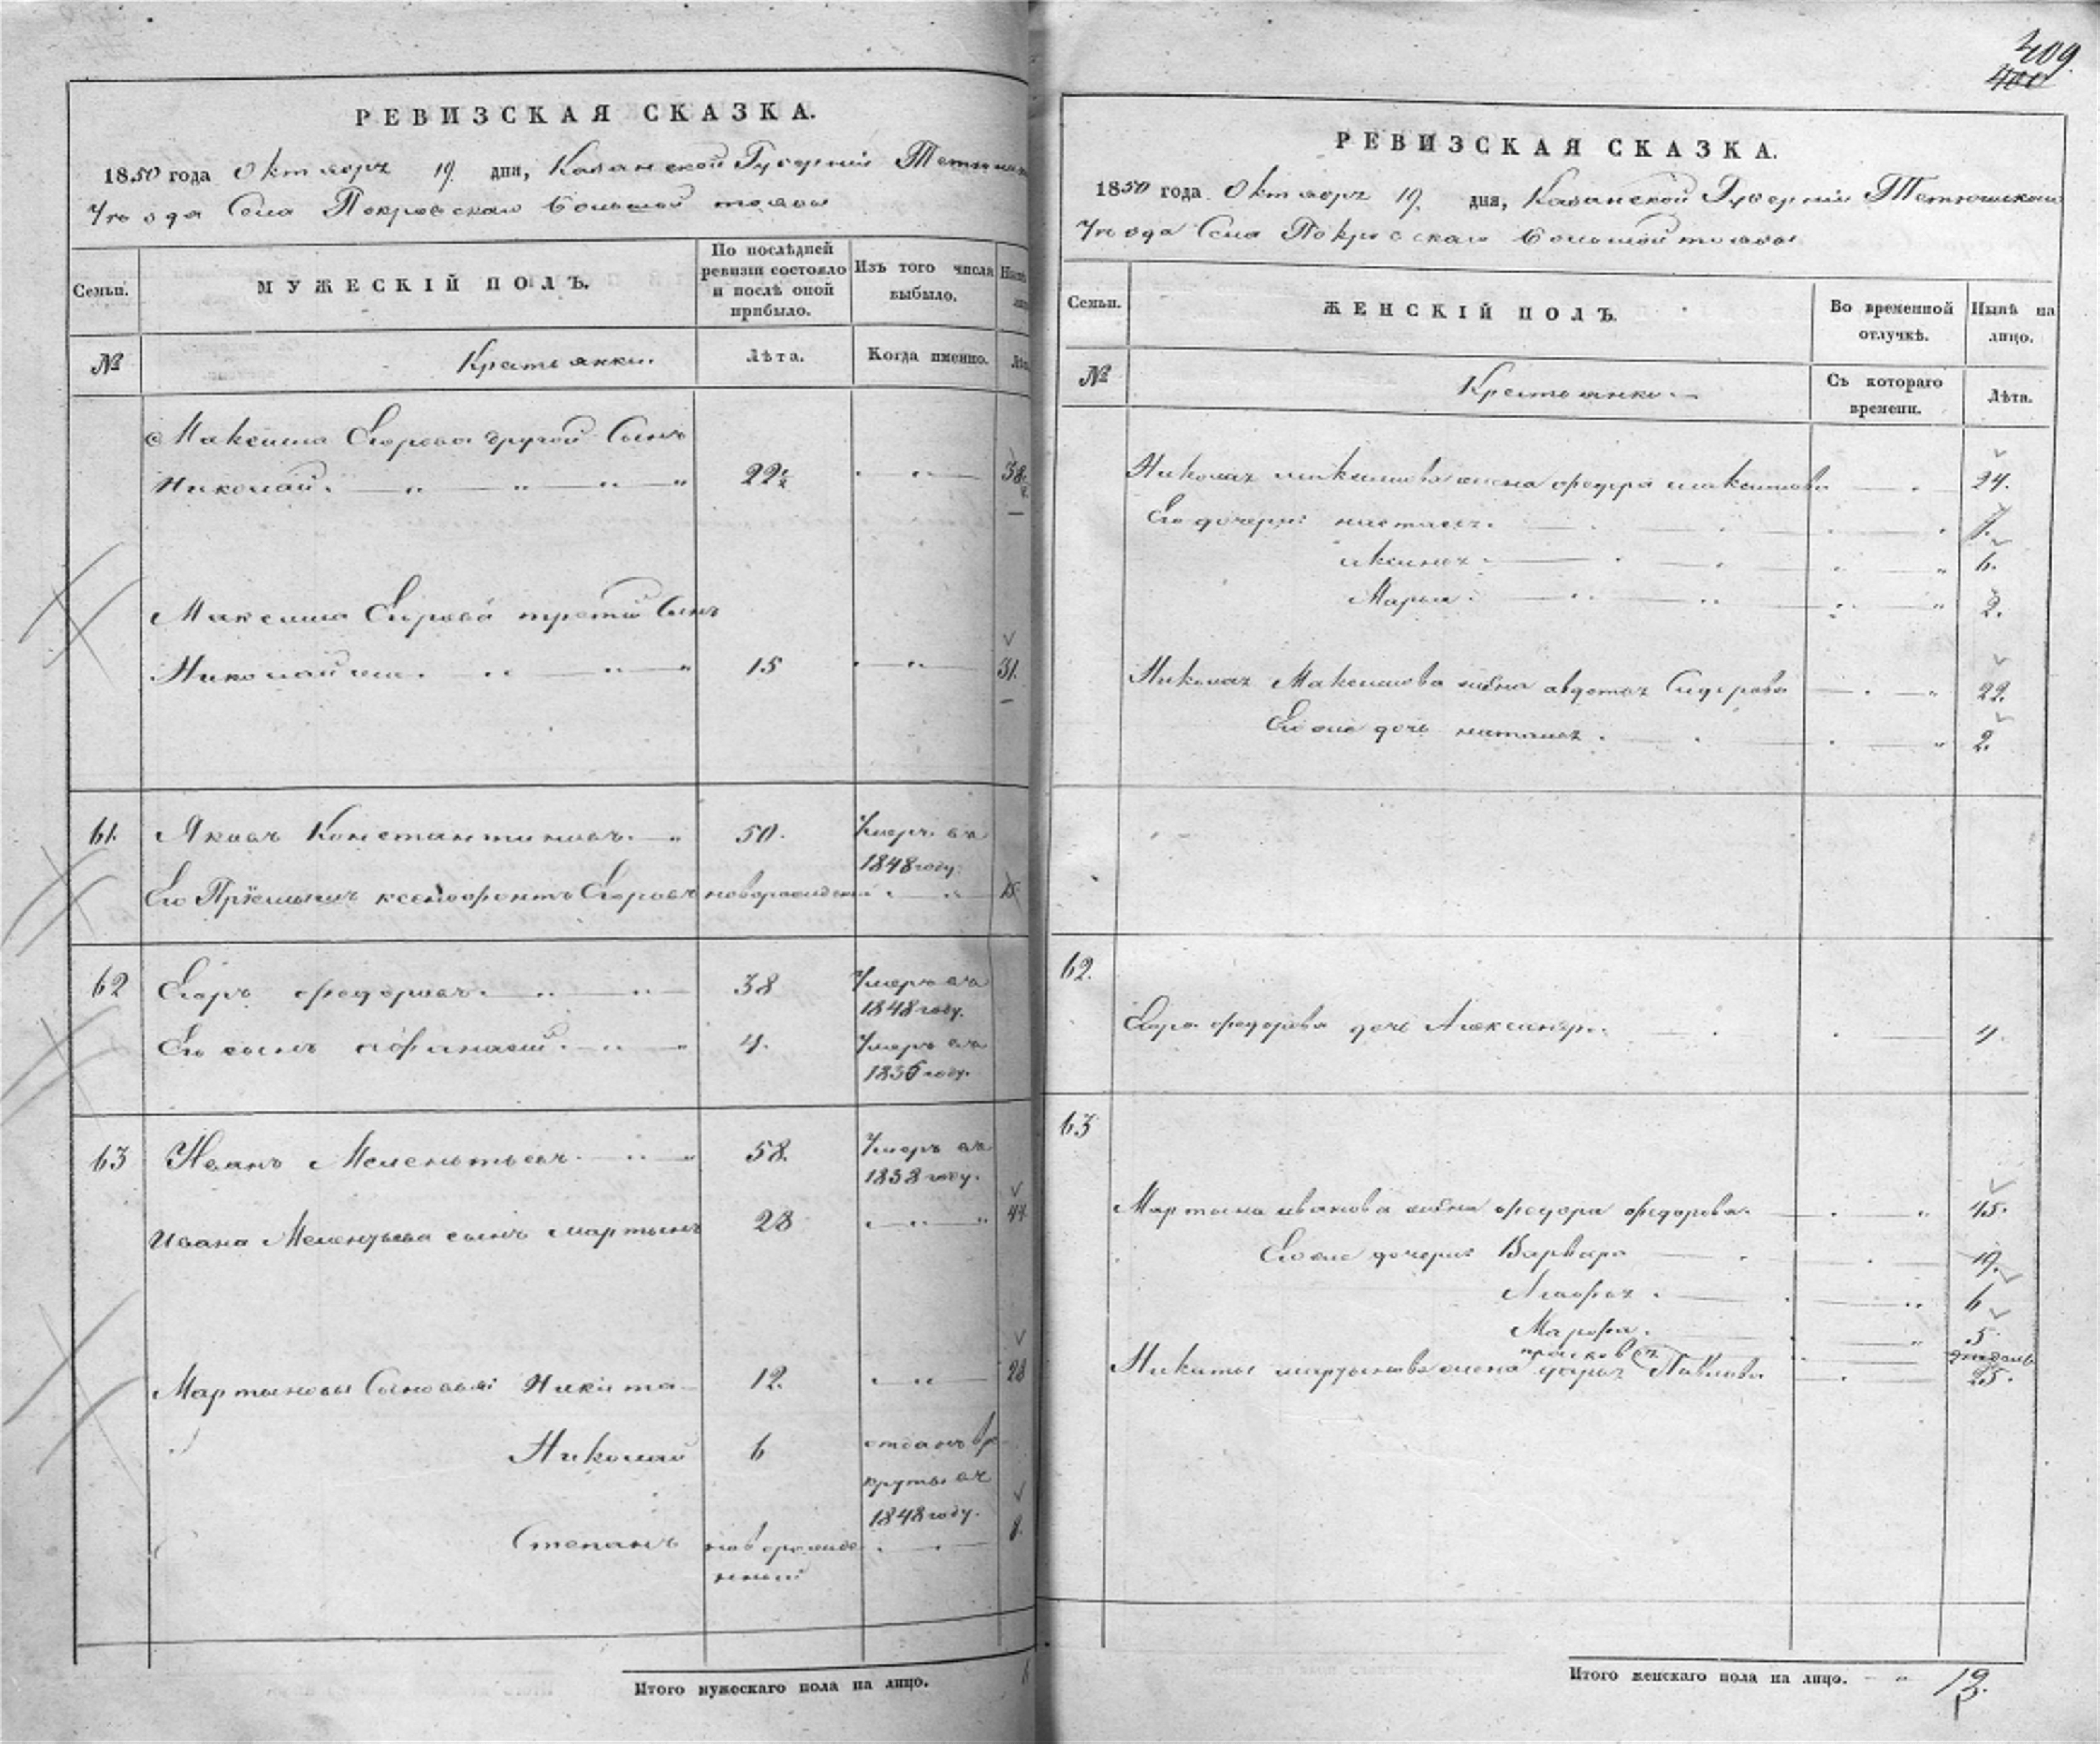 РЕВИЗСКАЯ СКАЗКА.
1850 года Октября 19. дня, Казанской Губерніи
Уезда Села Покровскаго большой тоябы
Семьи.
МУЖЕСКІЙ ПОЛЪ.
По послѣдней ревизіи состояло и послѣ оной прибыло.
Изъ того числа выбыло.
№
Крестьянки.
Лѣта.
Когда именно.
Максима Егорова другой Сынъ
Николай. 22½ 38½
Максима Егорова третій Сынъ
Николай же. 15 31.
61. Яковъ Константиновъ. 50. Умеръ въ
1848 году.
Его Пріемышъ Ксенофонтъ Егоровъ новорожденный
62 Егоръ федоровъ. 38 Умеръ въ
1848 году.
Его сынъ Афанасій. 4. Умеръ въ
1836 году.
63 Иванъ Мелентьевъ. 58. Умеръ въ
1838 году.
Ивана Мелентьева сынъ мартынъ 28 44.
Мартыновы Сыновья: Никита 12. 28
Николай 6 отданъ въ ре
круты въ
1848 году.
Степанъ новорожде 8.
нный
Итого мужескаго пола на лицо.
409.
400
РЕВИЗСКАЯ СКАЗКА.
1850 года Октября 19. дня, Казанской Губерніи Тетюшскаго
Уезда Села Покровскаго большой тоябы
Семьи.
ЖЕНСКІЙ ПОЛЪ.
Во временной отлучкѣ.
Нынѣ на лицо.
№
Крестьянки.
Съ котораго времени.
Лѣта.
Николая максимова жена федора максимова 24.
Его дочери: настасья. 7.
Аксинья 6.
Марья 2.
Николая Максимова жена авдотья Сидорова 22.
Его же дочь наталья. 2.
62.
Егора федорова дочь Александра. 4.
63
Мартына иванова жена федора федорова. 45.
Его же дочери: Варвара 19.
6
Марфа. 5
прасковья
Никиты мартынова жена дарья Павлова 25.
Итого женскаго пола на лицо. 13.